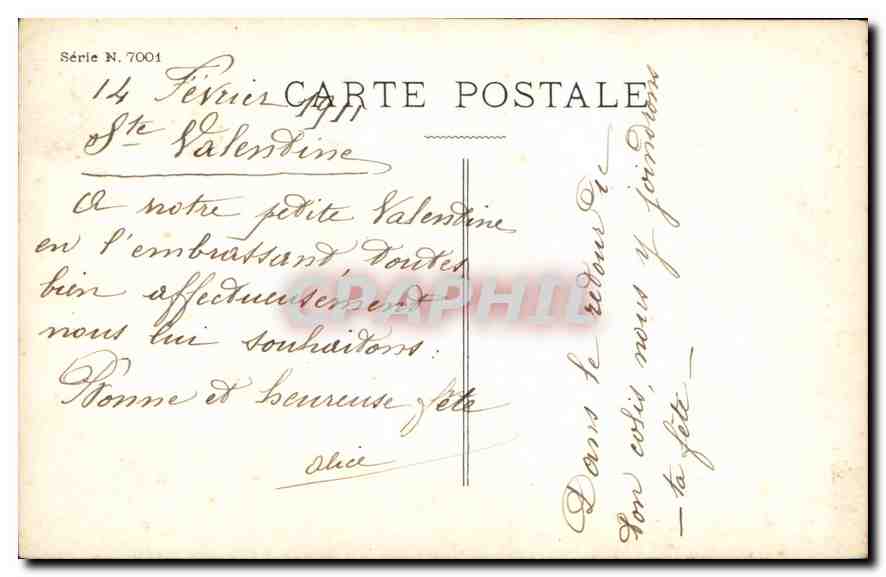 Série N. 7001
CARTE POSTALE
14 Février 1911
Ste Valentine
A notre petite Valentine
en l'embrassant, toutes
bien affectueusement
nous lui souhaitons:
Bonne et heureuse fête
Alice
Dans le retour de
ton colis, nous y joindrons
— ta fête —
CPAPHIL